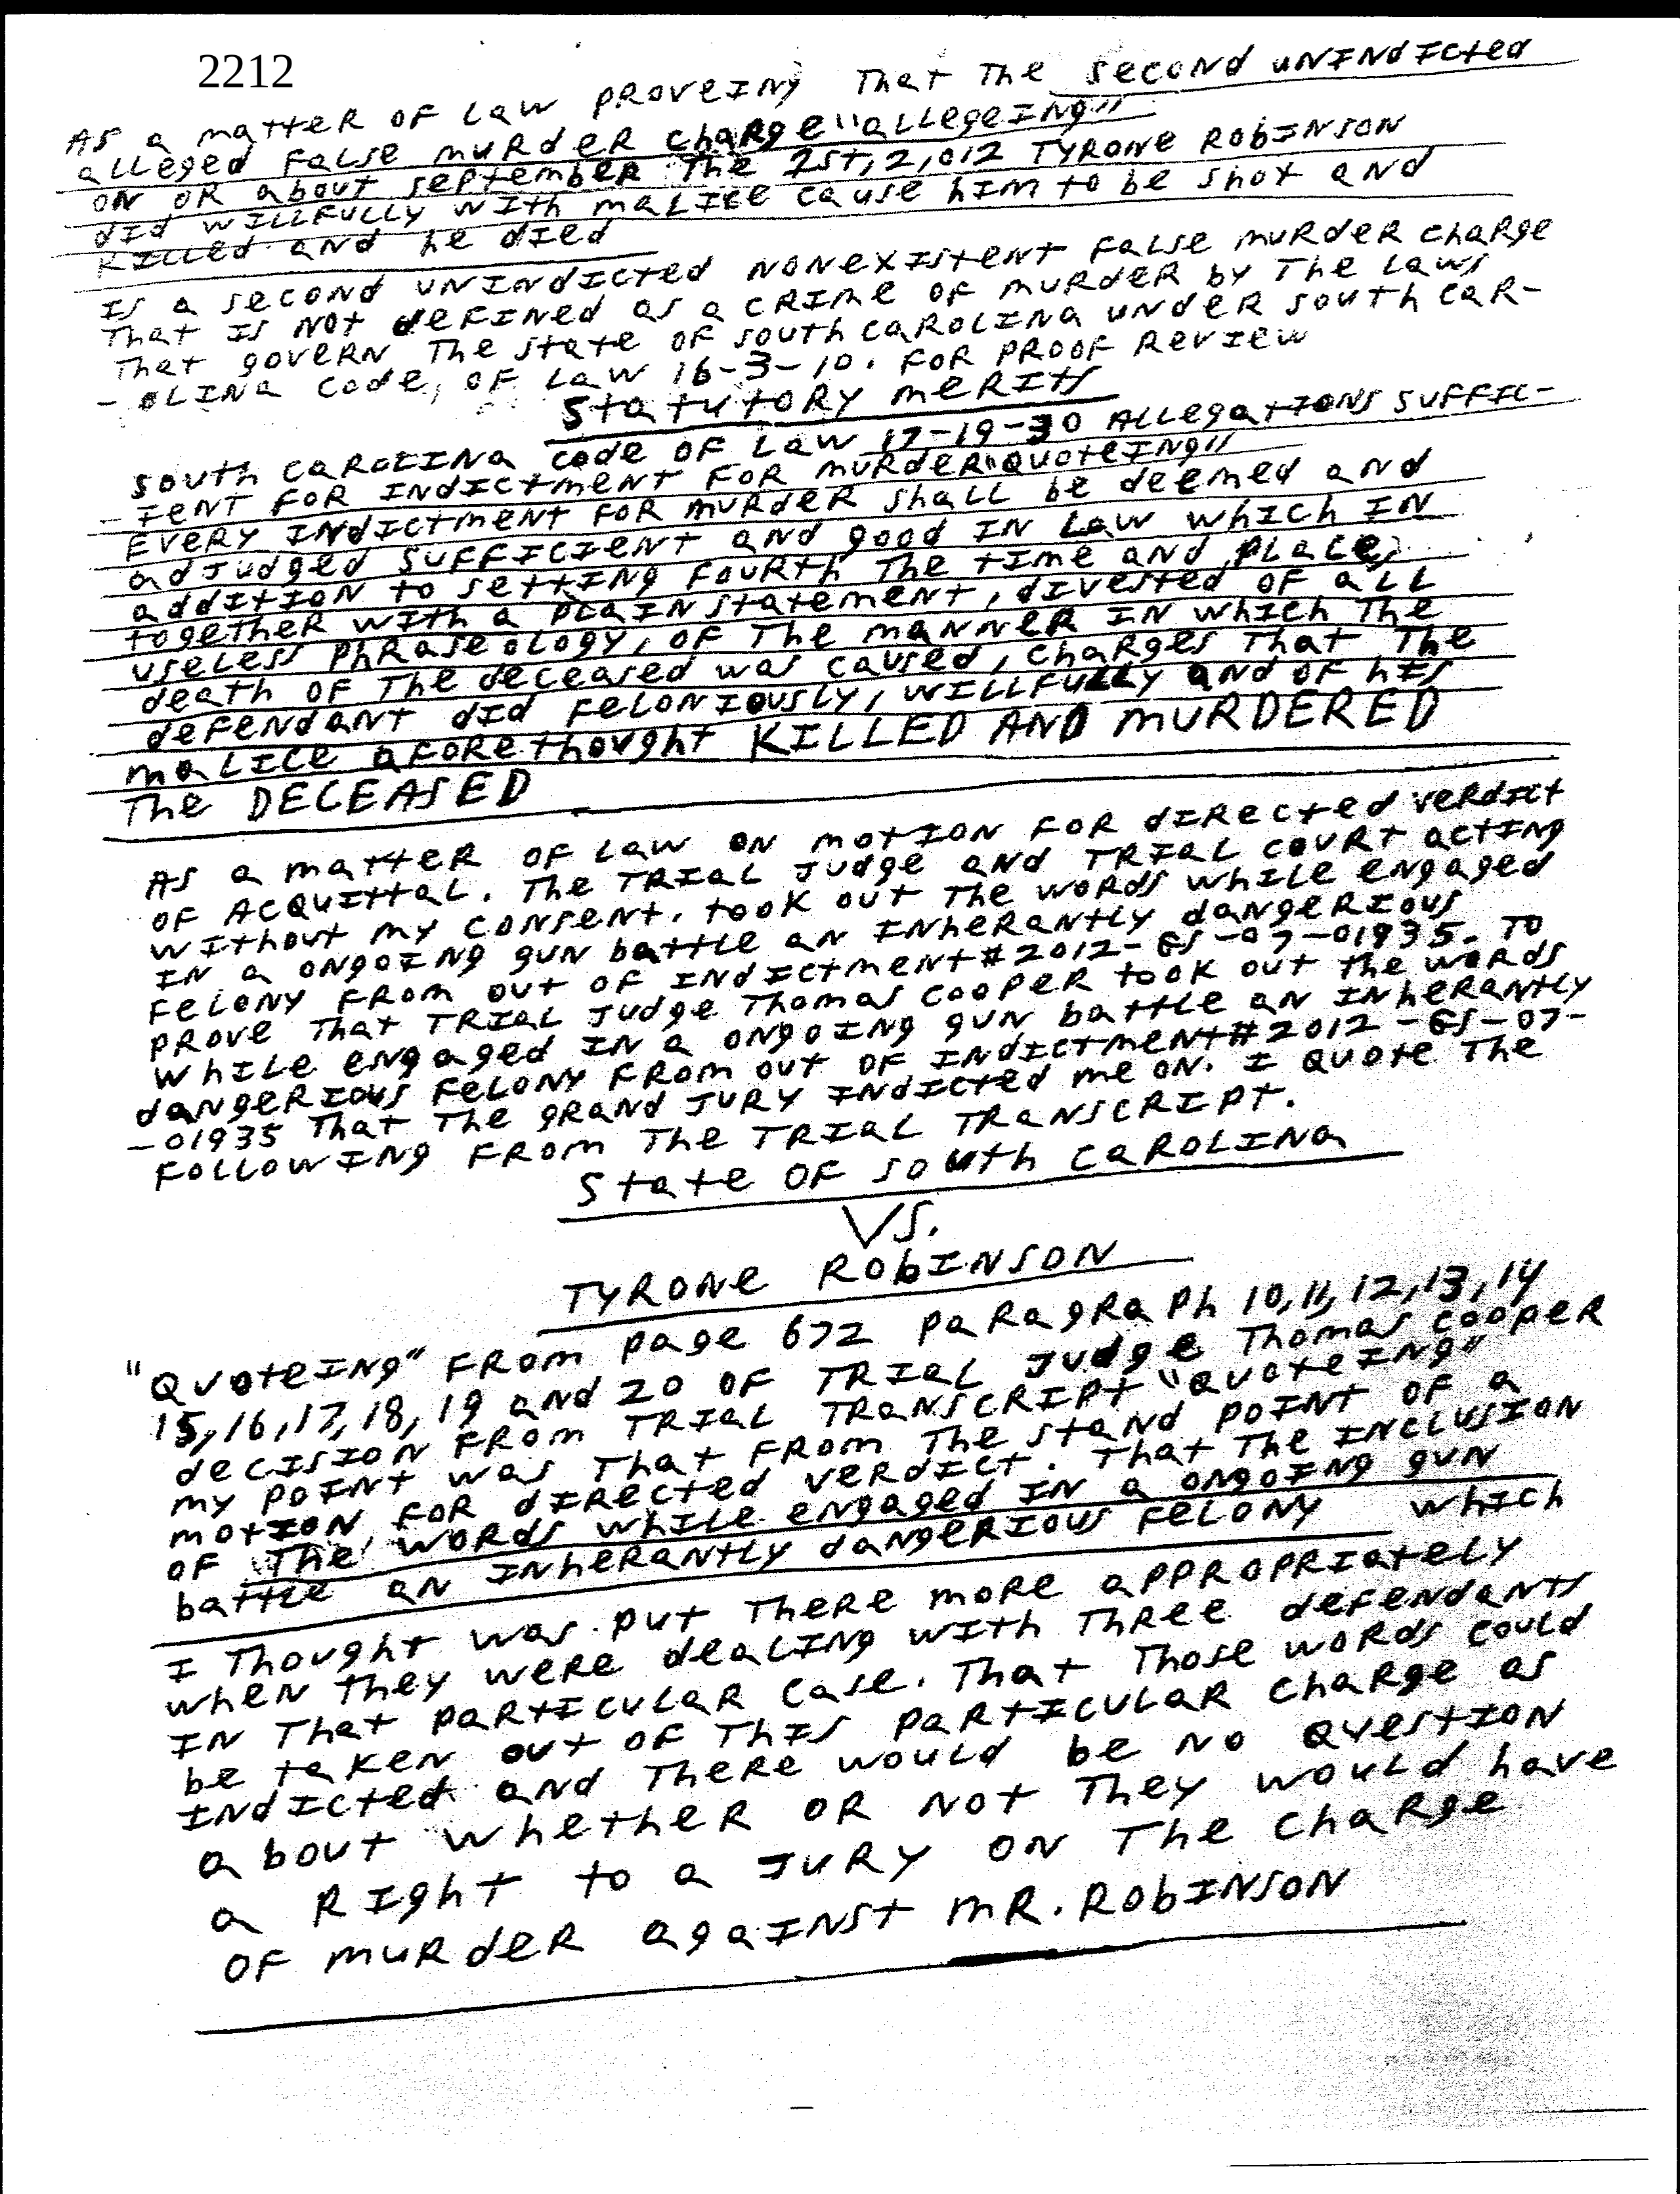 2212
AS a matteR OF Law PROVEINg That The second unINdIcted
alleged False muRdeR chaRge "aLLegeINg"
ON OR about septembeR The 1st, 2,012 TYRONe RobINSON
dId wILLFULLY wIth maLIce cause hIm to be shot aNd
KILLed aNd he dIed
IS a second UNINdIcted NONexIsteNt FaLse muRdeR chaRge
That IS Not deFINed as a cRIme OF muRdeR by The Laws
That goveRN The state OF south caROLINa undeR south caR-
-OLINa code, OF Law 16-3-10. FOR PROOF RevIew
StatutORY meRIts
south caROLINa code OF Law 17-19-30 ALLegatIONs suFFIc-
-IeNt FOR INdIctmeNt FOR muRdeR "QuoteINg"
EveRY INdIctmeNt FOR muRdeR shaLL be deemed aNd
adJudged suFFIcIeNt aNd good IN Law whIch IN
addItION to settINg FouRth The tIme aNd PLace,
togetheR wIth a PLaIN statemeNt, dIvested OF aLL
useLess PhRaseoLogy, OF The maNNeR IN whIch The
death OF The deceased was caused, chaRges That The
deFeNdaNt dId FeLONIousLy, wILLFuLLy aNd OF hIs
maLIce aFoRethought KILLED AND MURDERED
The DECEASED
AS a matteR OF Law ON motION FOR dIRected veRdIct
OF AcQuIttaL. The TRIaL Judge aNd TRIaL couRt actINg
wIthout my coNseNt. took out The woRds whILe eNgaged
IN a oNgoINg guN battLe aN INheRaNtLy daNgeRIous
FeLONY FRom out OF INdIctmeNt#2012-GS-07-01935. TO
PRove That TRIaL Judge Thomas cooPeR took out the woRds
whILe eNgaged IN a oNgoINg guN battLe aN INheRaNtLy
daNgeRIous FeLONY FRom out OF INdIctmeNt#2012-GS-07-
-01935 That The gRaNd JuRY INdIcted me oN. I Quote The
FoLLowINg FRom The TRIaL TRaNscRIPt.
State OF South CaROLINa
VS.
TYRONe RobINSON
"QuoteINg" FRom Page 672 PaRagRaPh 10,11,12,13,14
15,16,17,18,19 aNd 20 OF TRIaL Judge Thomas cooPeR
decIsIoN FRom TRIaL TRaNscRIPt "QuoteINg"
my PoINt was That FRom The staNd PoINt OF a
motIoN FOR dIRected veRdIct. That The INcLusIoN
OF The woRds whILe eNgaged IN a oNgoINg guN
battLe aN INheRaNtLy daNgeRIous FeLONY whIch
I Thought was put TheRe moRe aPPRoPRIateLY
wheN They weRe deaLINg wIth ThRee deFeNdaNts
IN That PaRtIcuLaR case. That Those woRds couLd
be takeN out OF ThIs PaRtIcuLaR chaRge as
INdIcted aNd TheRe wouLd be No QuestIoN
about whetheR OR Not They wouLd have
a RIght to a JuRY oN The chaRge
OF muRdeR agaINst mR. RobINSON